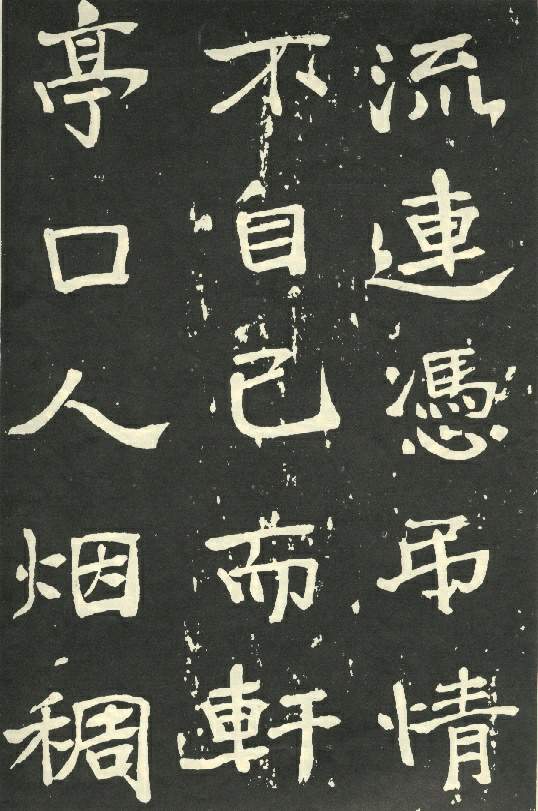 流連憑吊情
不自已而軒
亭口人烟稠